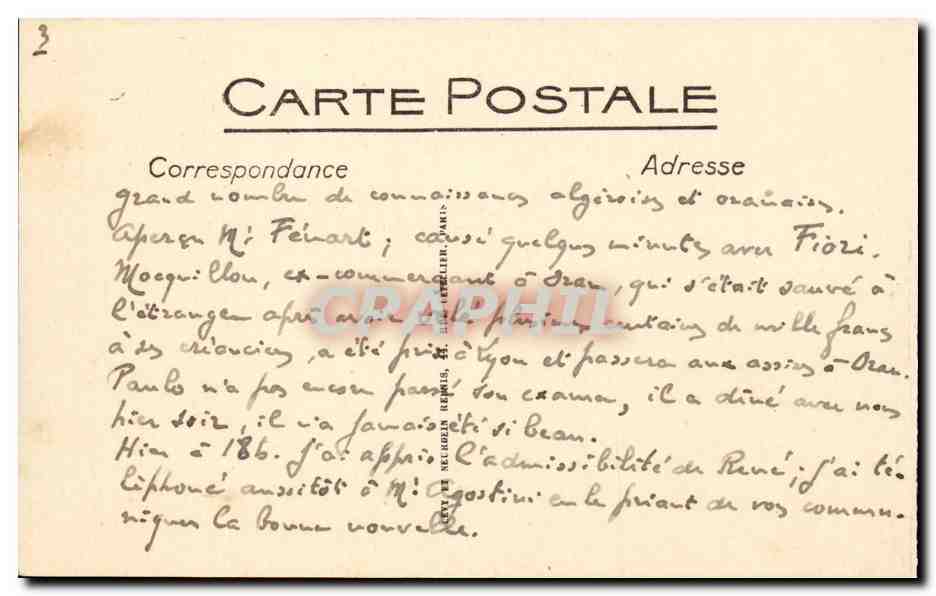 3
CARTE POSTALE
Correspondance
Adresse
grand nombre de connaissances algéroises et oranaises.
Aperçu Mr Fénart ; causé quelques minutes avec Fiori.
Mocquillon, ex-commerçant à Oran, qui s'était sauvé à
l'étranger après avoir volé plusieurs centaines de mille francs
à ses créanciers, a été pris à Lyon et passera aux assises à Oran.
Paulo n'a pas encore passé son examen, il a dîné avec nous
hier soir, il n'a jamais été si beau.
Hier à 18h. j'ai appris l'admissibilité de René ; j'ai té-
léphoné aussitôt à Mr Agostini en le priant de vous commu-
niquer la bonne nouvelle.
LEVY ET NEURDEIN REUNIS, 44, RUE LETELLIER, PARIS
CPAPHIL